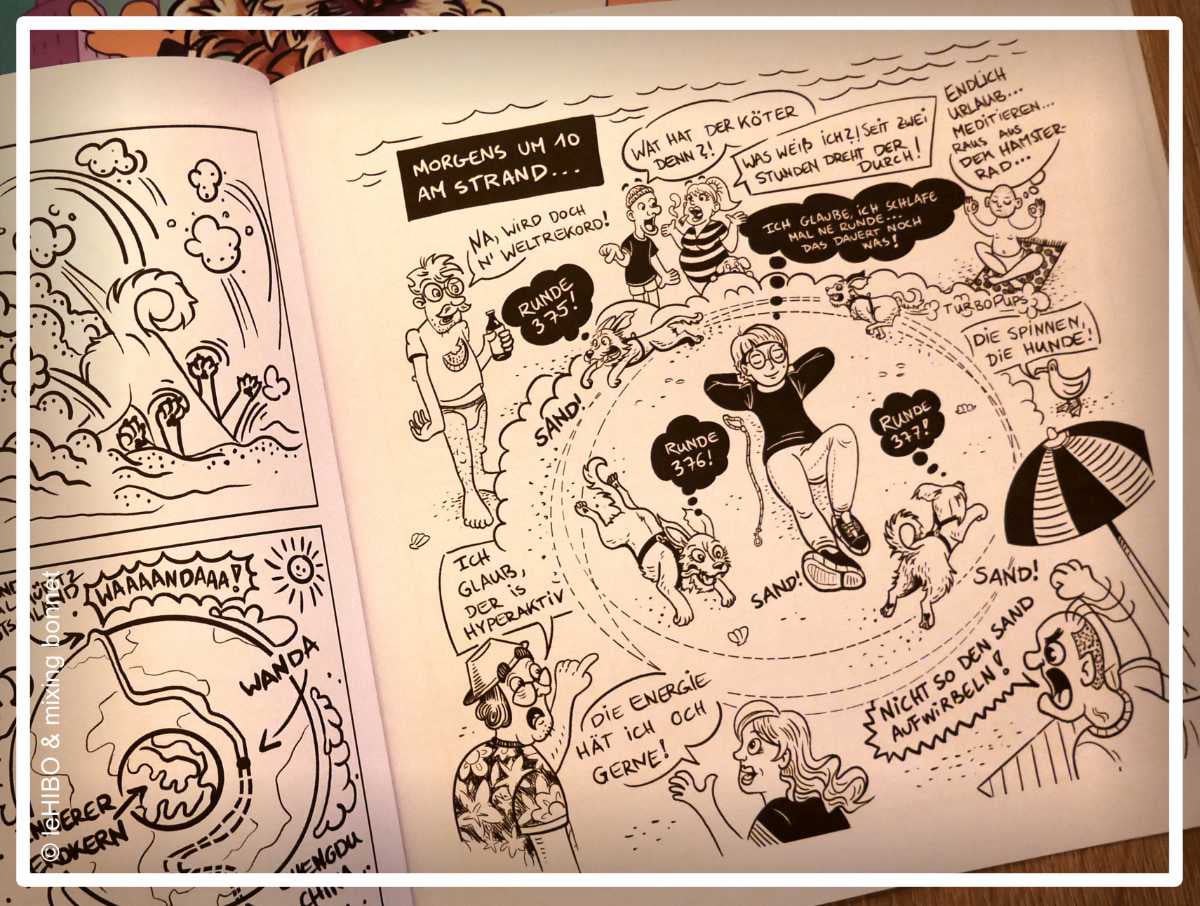 WAAAANDAAA!
WANDA
ERDKERN
CHINA
MORGENS UM 10
AM STRAND...
WAT HAT DER KÖTER
DENN?!
WAS WEIß ICH?! SEIT ZWEI
STUNDEN DREHT DER
DURCH!
ENDLICH
URLAUB...
MEDITIEREN...
RAUS AUS
DEM HAMSTER-
RAD...
NA, WIRD DOCH
N' WELTREKORD!
RUNDE
375!
ICH GLAUBE, ICH SCHLAFE
MAL NE RUNDE...
DAS DAUERT NOCH
WAS!
TURBOPUPS
DIE SPINNEN,
DIE HUNDE!
SAND!
RUNDE
376!
RUNDE
377!
SAND!
SAND!
ICH
GLAUB,
DER IS
HYPERAKTIV
DIE ENERGIE
HÄT ICH OCH
GERNE!
NICHT SO DEN SAND
AUFWIRBELN!
© leHIBO & mixing bonnet